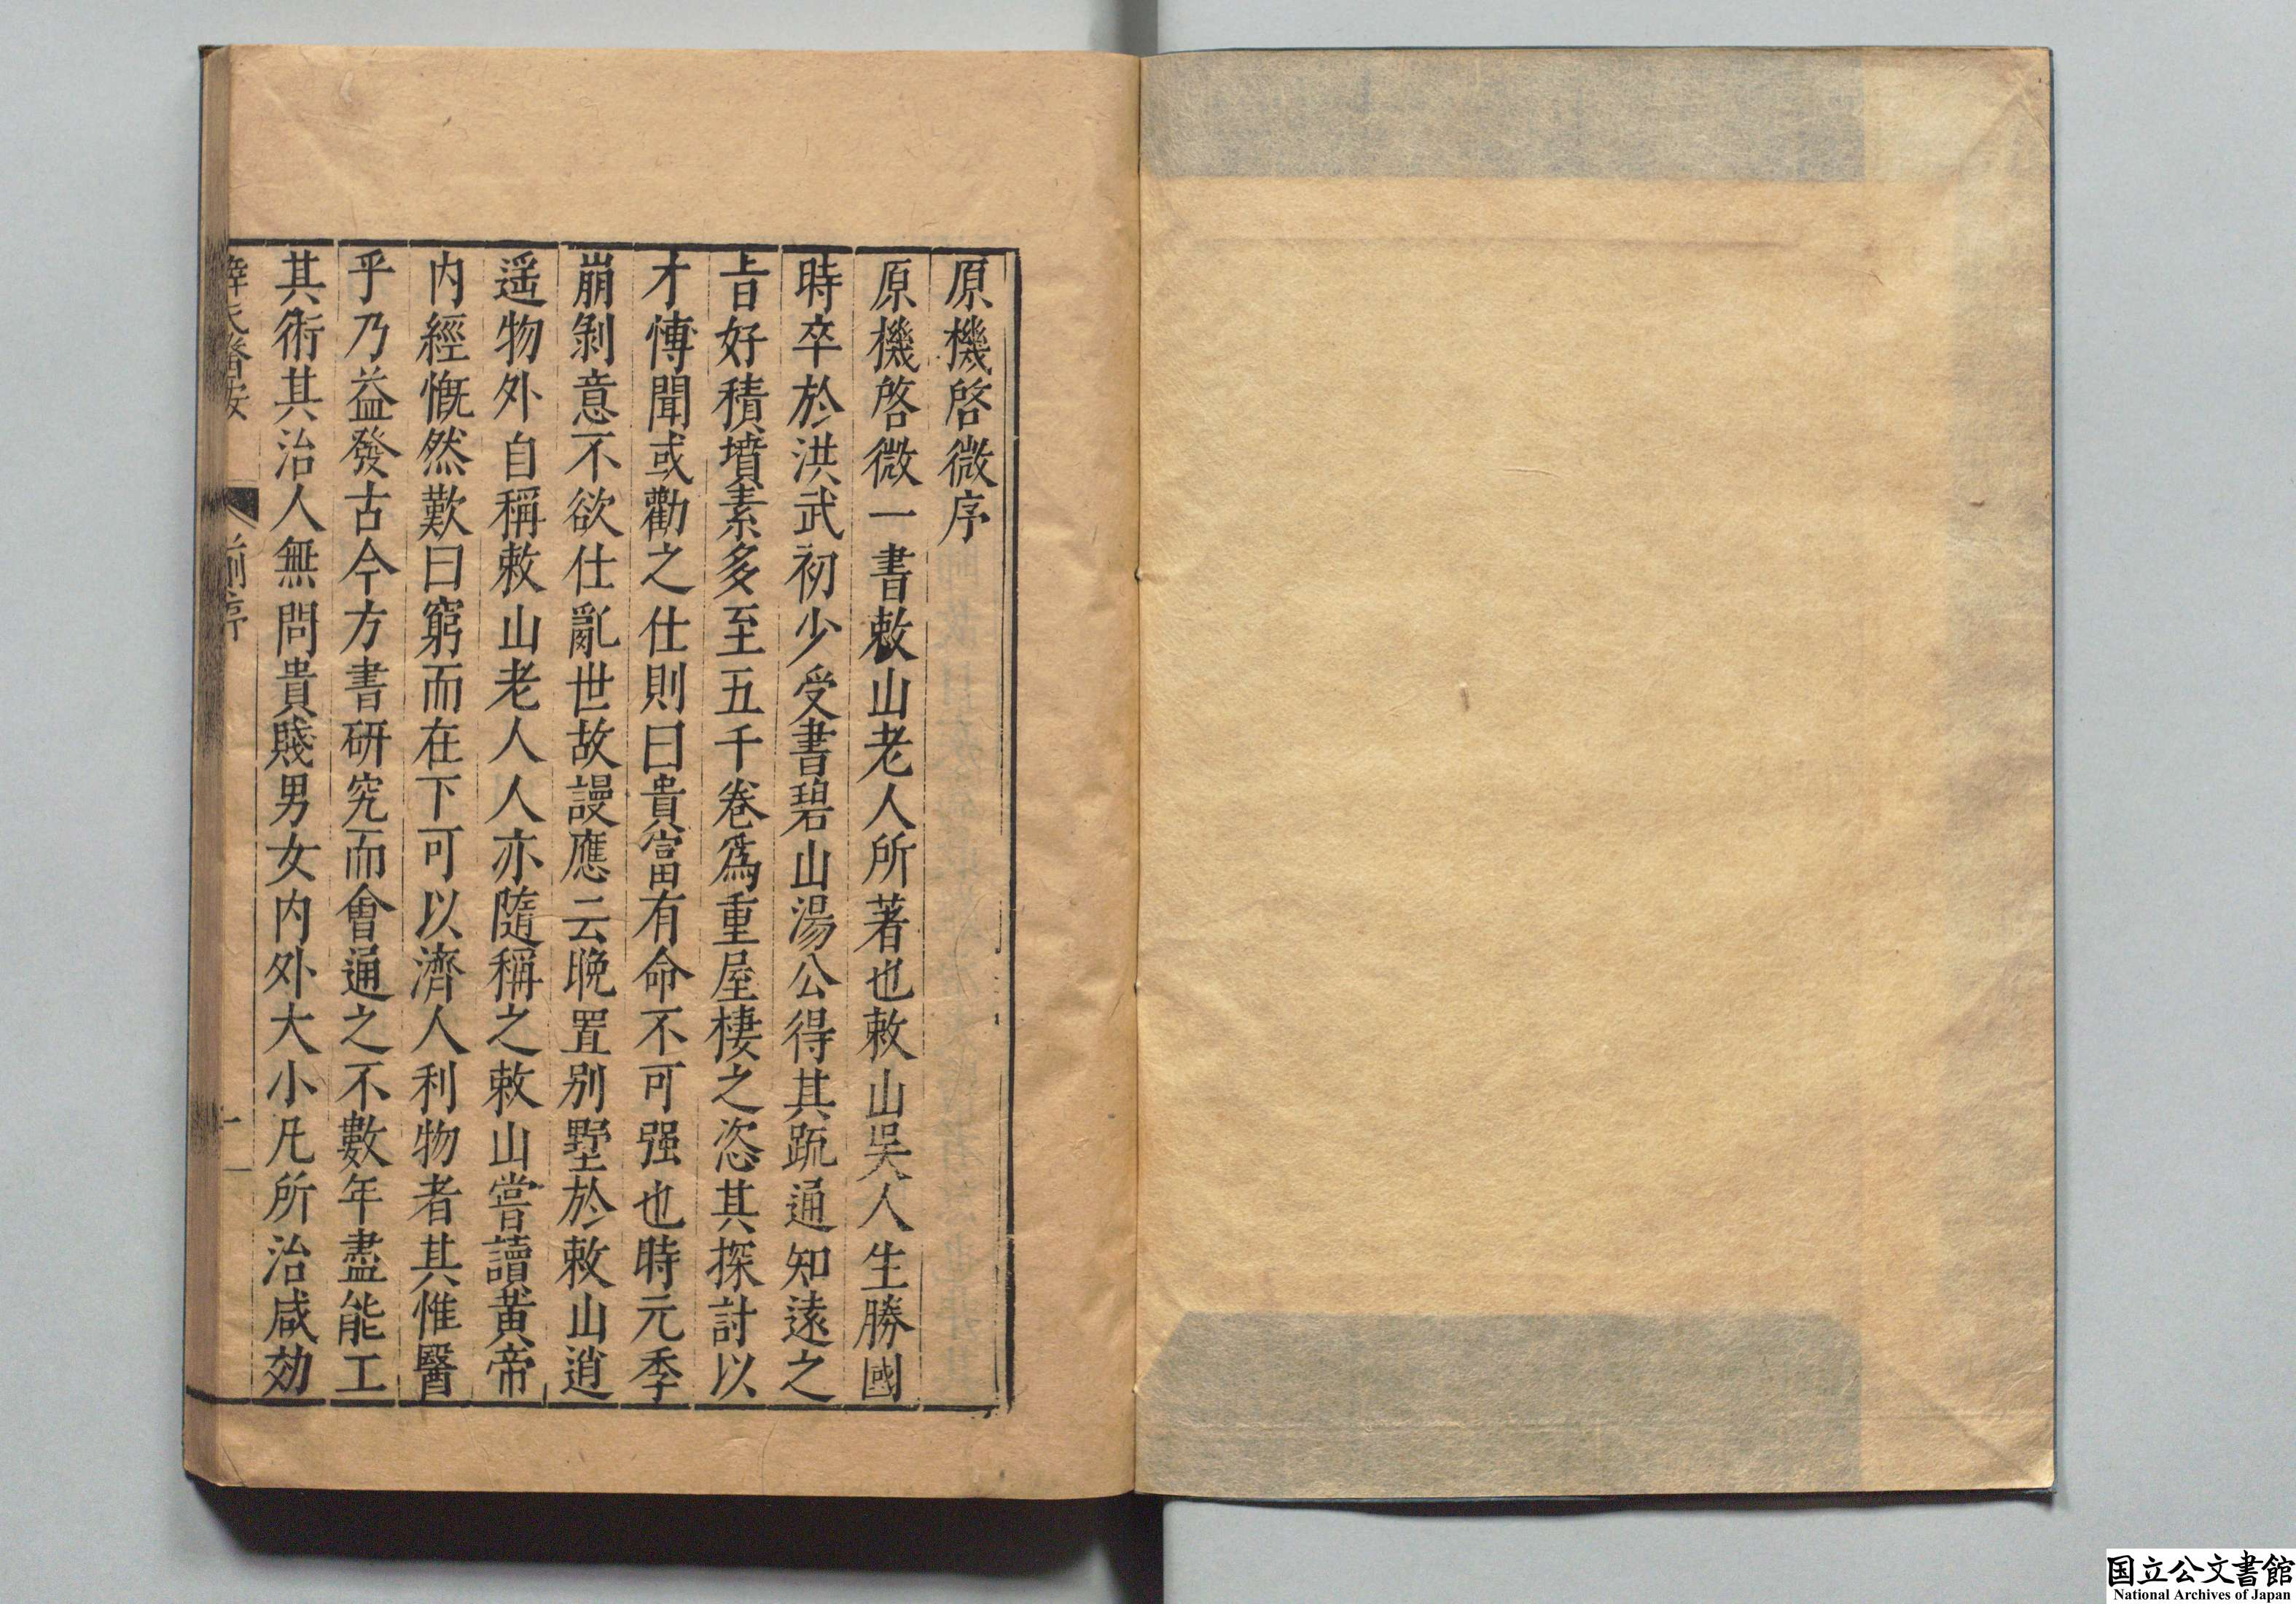 原機啓微序
原機啓微一書敕山老人所著也敕山吳人生勝國
時卒於洪武初少受書碧山湯公得其䟽通知遠之
旨好積墳素多至五千卷爲重屋棲之恣其探討以
才愽聞或勸之仕則曰貴富有命不可强也時元季
崩剝意不欲仕亂世故謾應云晩置别墅於敕山逍
遥物外自稱敕山老人人亦隨稱之敕山嘗讀黃帝
内經慨然歎曰窮而在下可以濟人利物者其惟醫
乎乃益發古今方書研究而會通之不數年盡能工
其術其治人無問貴賤男女内外大小凡所治咸効
薛氏醫按
前序
一
国立公文書館
National Archives of Japan